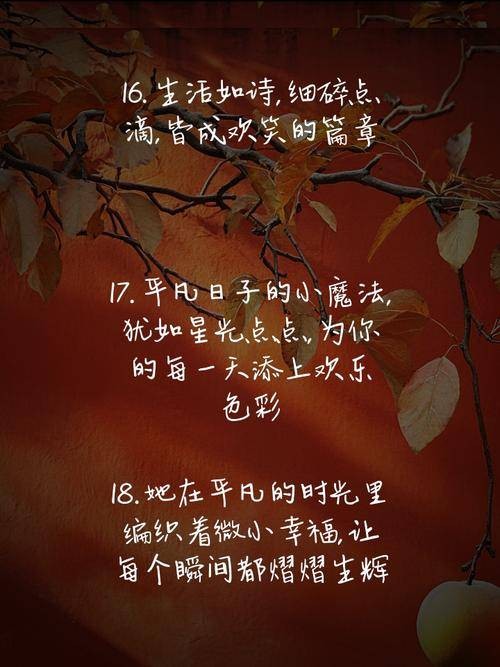 16. 生活如诗,细碎点
滴,皆成欢笑的篇章
17. 平凡日子的小魔法,
犹如星光点点,为你
的每一天添上欢乐
色彩
18. 她在平凡的时光里
编织着微小幸福,让
每个瞬间都熠熠生辉